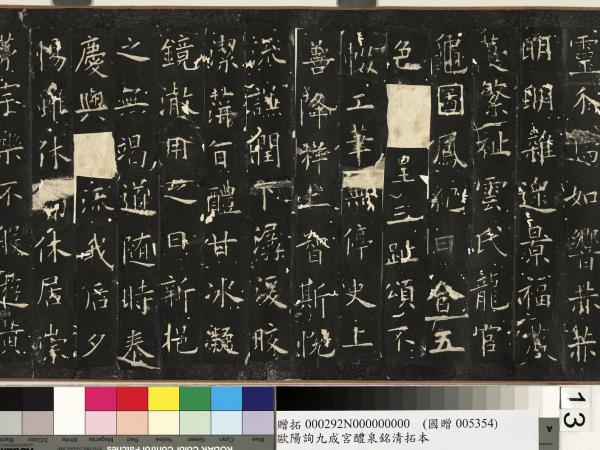 靈介焉如響赫赫
明明雜遝景福葳
蕤繁祉雲氏龍官
龜圖鳳紀日含五
色呈三趾頌不
輟工筆無停史上
善降祥上智斯悅
流謙潤下潺湲皎
潔蓱旨醴甘冰凝
鏡澈用之日新挹
之無竭道隨時泰
慶與流我后夕
惕雖休弗休居崇
茅宇樂不般遊黃
贈拓 000292N000000000 (國贈 005354)
歐陽詢九成宮醴泉銘清拓本
13
A
Black
3/Color
White
Magenta
Red
Yellow
Green
Cyan
Blue
KODAK Color Control Patches